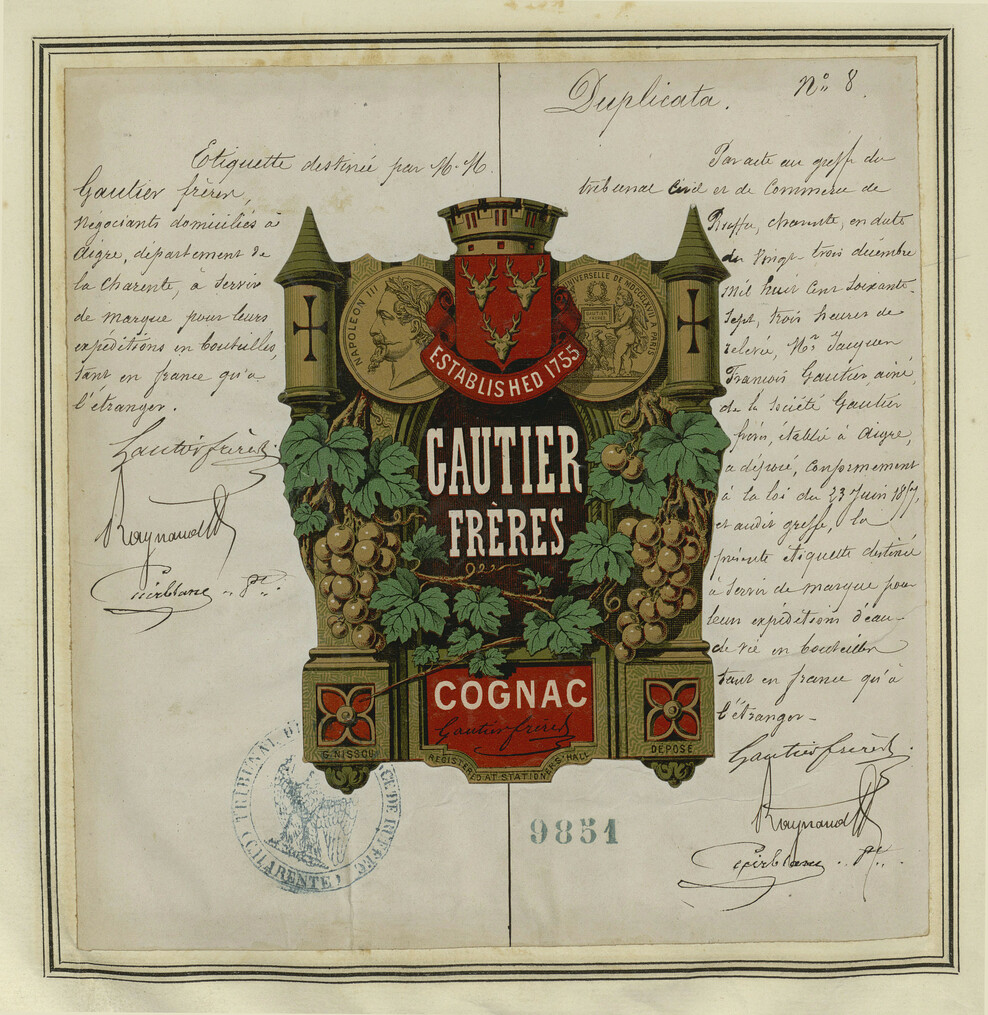 Duplicata. N° 8
Etiquette destinée par M.M.
Gautier frères,
négociants domiciliés à
Aigre, département de
la Charente, à servir
de marque pour leurs
expéditions en bouteilles,
tant en france qu'à
l'étranger.
Gautier frères
Raynaud
Par acte au greffe du
tribunal Civil et de Commerce de
Ruffec, charente, en date
du vingt-trois décembre
mil huit cent soixante-
sept, trois heures de
relevée, Mr Jacques
François Gautier ainé,
de la société Gautier
frères, établie à Aigre,
a déposé, conformement
à la loi du 23 Juin 1857,
et audit greffe, la
présente étiquette destinée
à servir de marque pour
leurs expéditions d'eau-
de vie en bouteilles
tant en france qu'à
l'étranger-
Gautier frères.
Raynaud
NAPOLEON III
UNIVERSELLE DE MDCCCLXVII A PARIS
GAUTIER
FRERES
ESTABLISHED 1755
GAUTIER
FRÈRES
COGNAC
Gautier frères
G. NISSOU
DÉPOSÉ
REGISTERED AT STATIONERS' HALL
TRIBUNAL DE CE DE RUFFEC
(CHARENTE)
9851